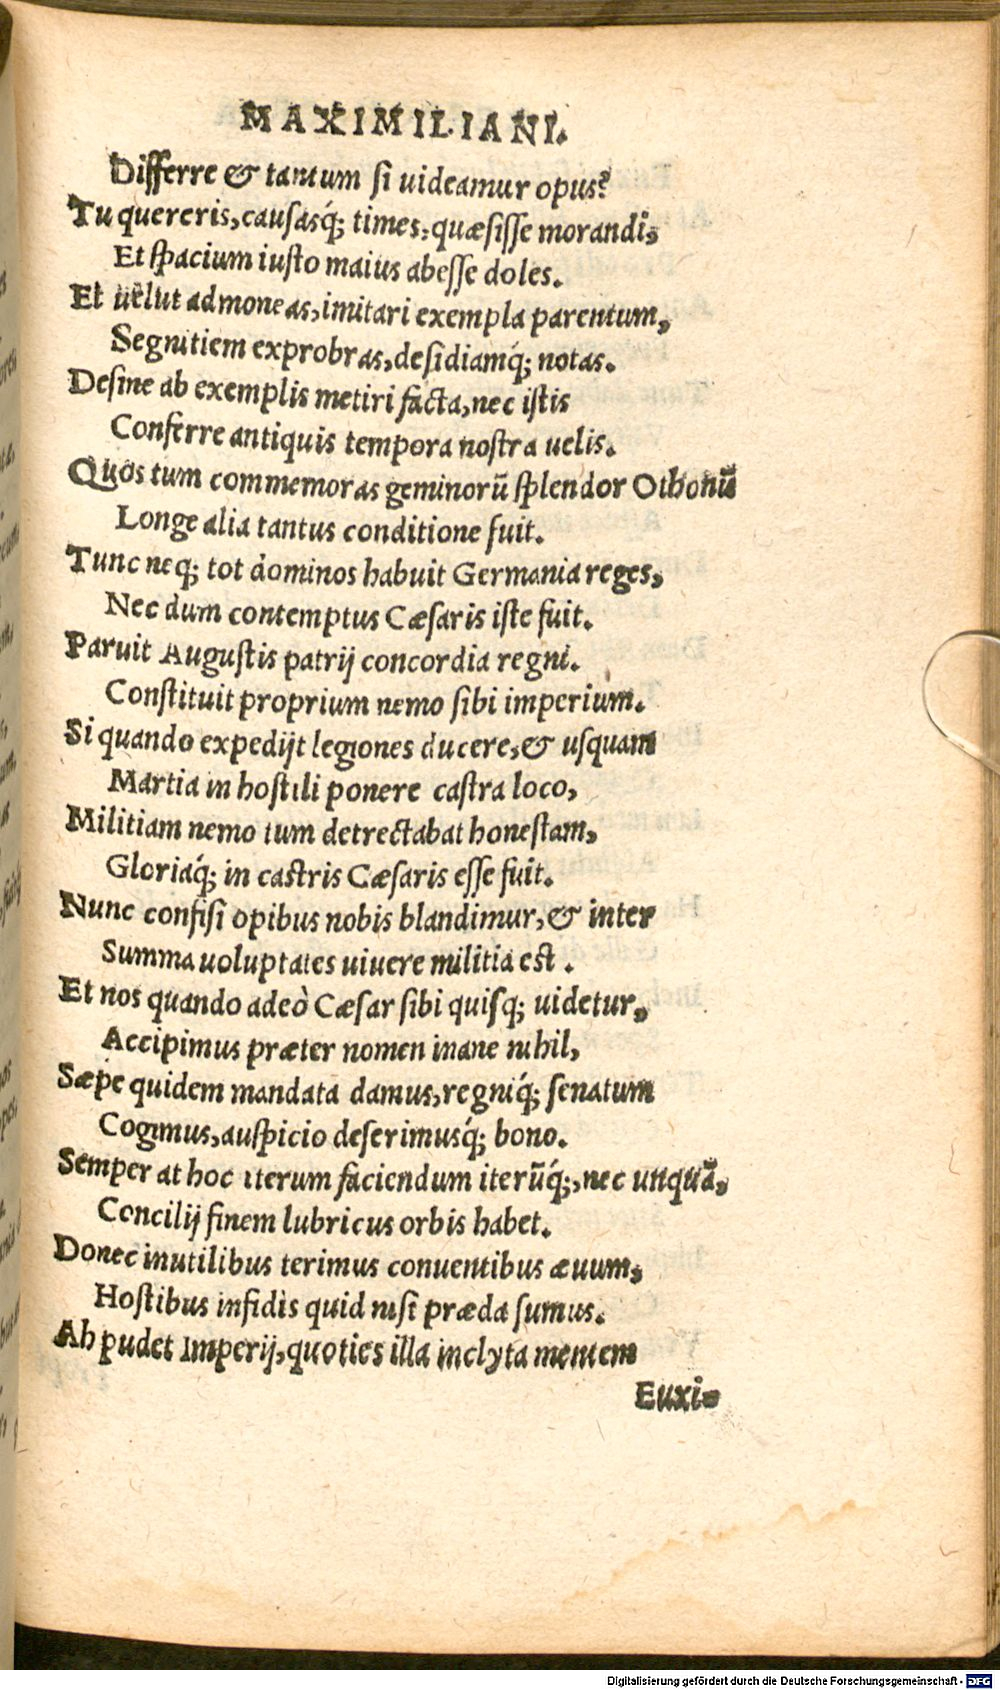 MAXIMILIANI.
Differre & tantum si uideamur opus?
Tu quereris, causasq́; times, quæsisse morandi,
Et spacium iusto maius abesse doles.
Et uelut admoneas, imitari exempla parentum,
Segnitiem exprobras, desidiamq́; notas.
Desine ab exemplis metiri facta, nec istis
Conferre antiquis tempora nostra uelis.
Quos tum commemoras geminorū splendor Othonū
Longe alia tantus conditione fuit.
Tunc neq; tot dominos habuit Germania reges,
Nec dum contemptus Cæsaris iste fuit.
Paruit Augustis patrij concordia regni.
Constituit proprium nemo sibi imperium.
Si quando expedijt legiones ducere, & usquam
Martia in hostili ponere castra loco,
Militiam nemo tum detrectabat honestam,
Gloriaq́; in castris Cæsaris esse fuit.
Nunc confisi opibus nobis blandimur, & inter
Summa uoluptates uiuere militia est.
Et nos quando adeò Cæsar sibi quisq; uidetur,
Accipimus præter nomen inane nihil,
Sæpe quidem mandata damus, regniq́; senatum
Cogimus, auspicio deserimusq́; bono.
Semper at hoc iterum faciendum iterūq́;, nec unquā,
Concilij finem lubricus orbis habet.
Donec inutilibus terimus conuentibus æuum,
Hostibus infidis quid nisi præda sumus.
Ah pudet Imperij, quoties illa inclyta mentem
Euxi-
Digitalisierung gefördert durch die Deutsche Forschungsgemeinschaft - DFG